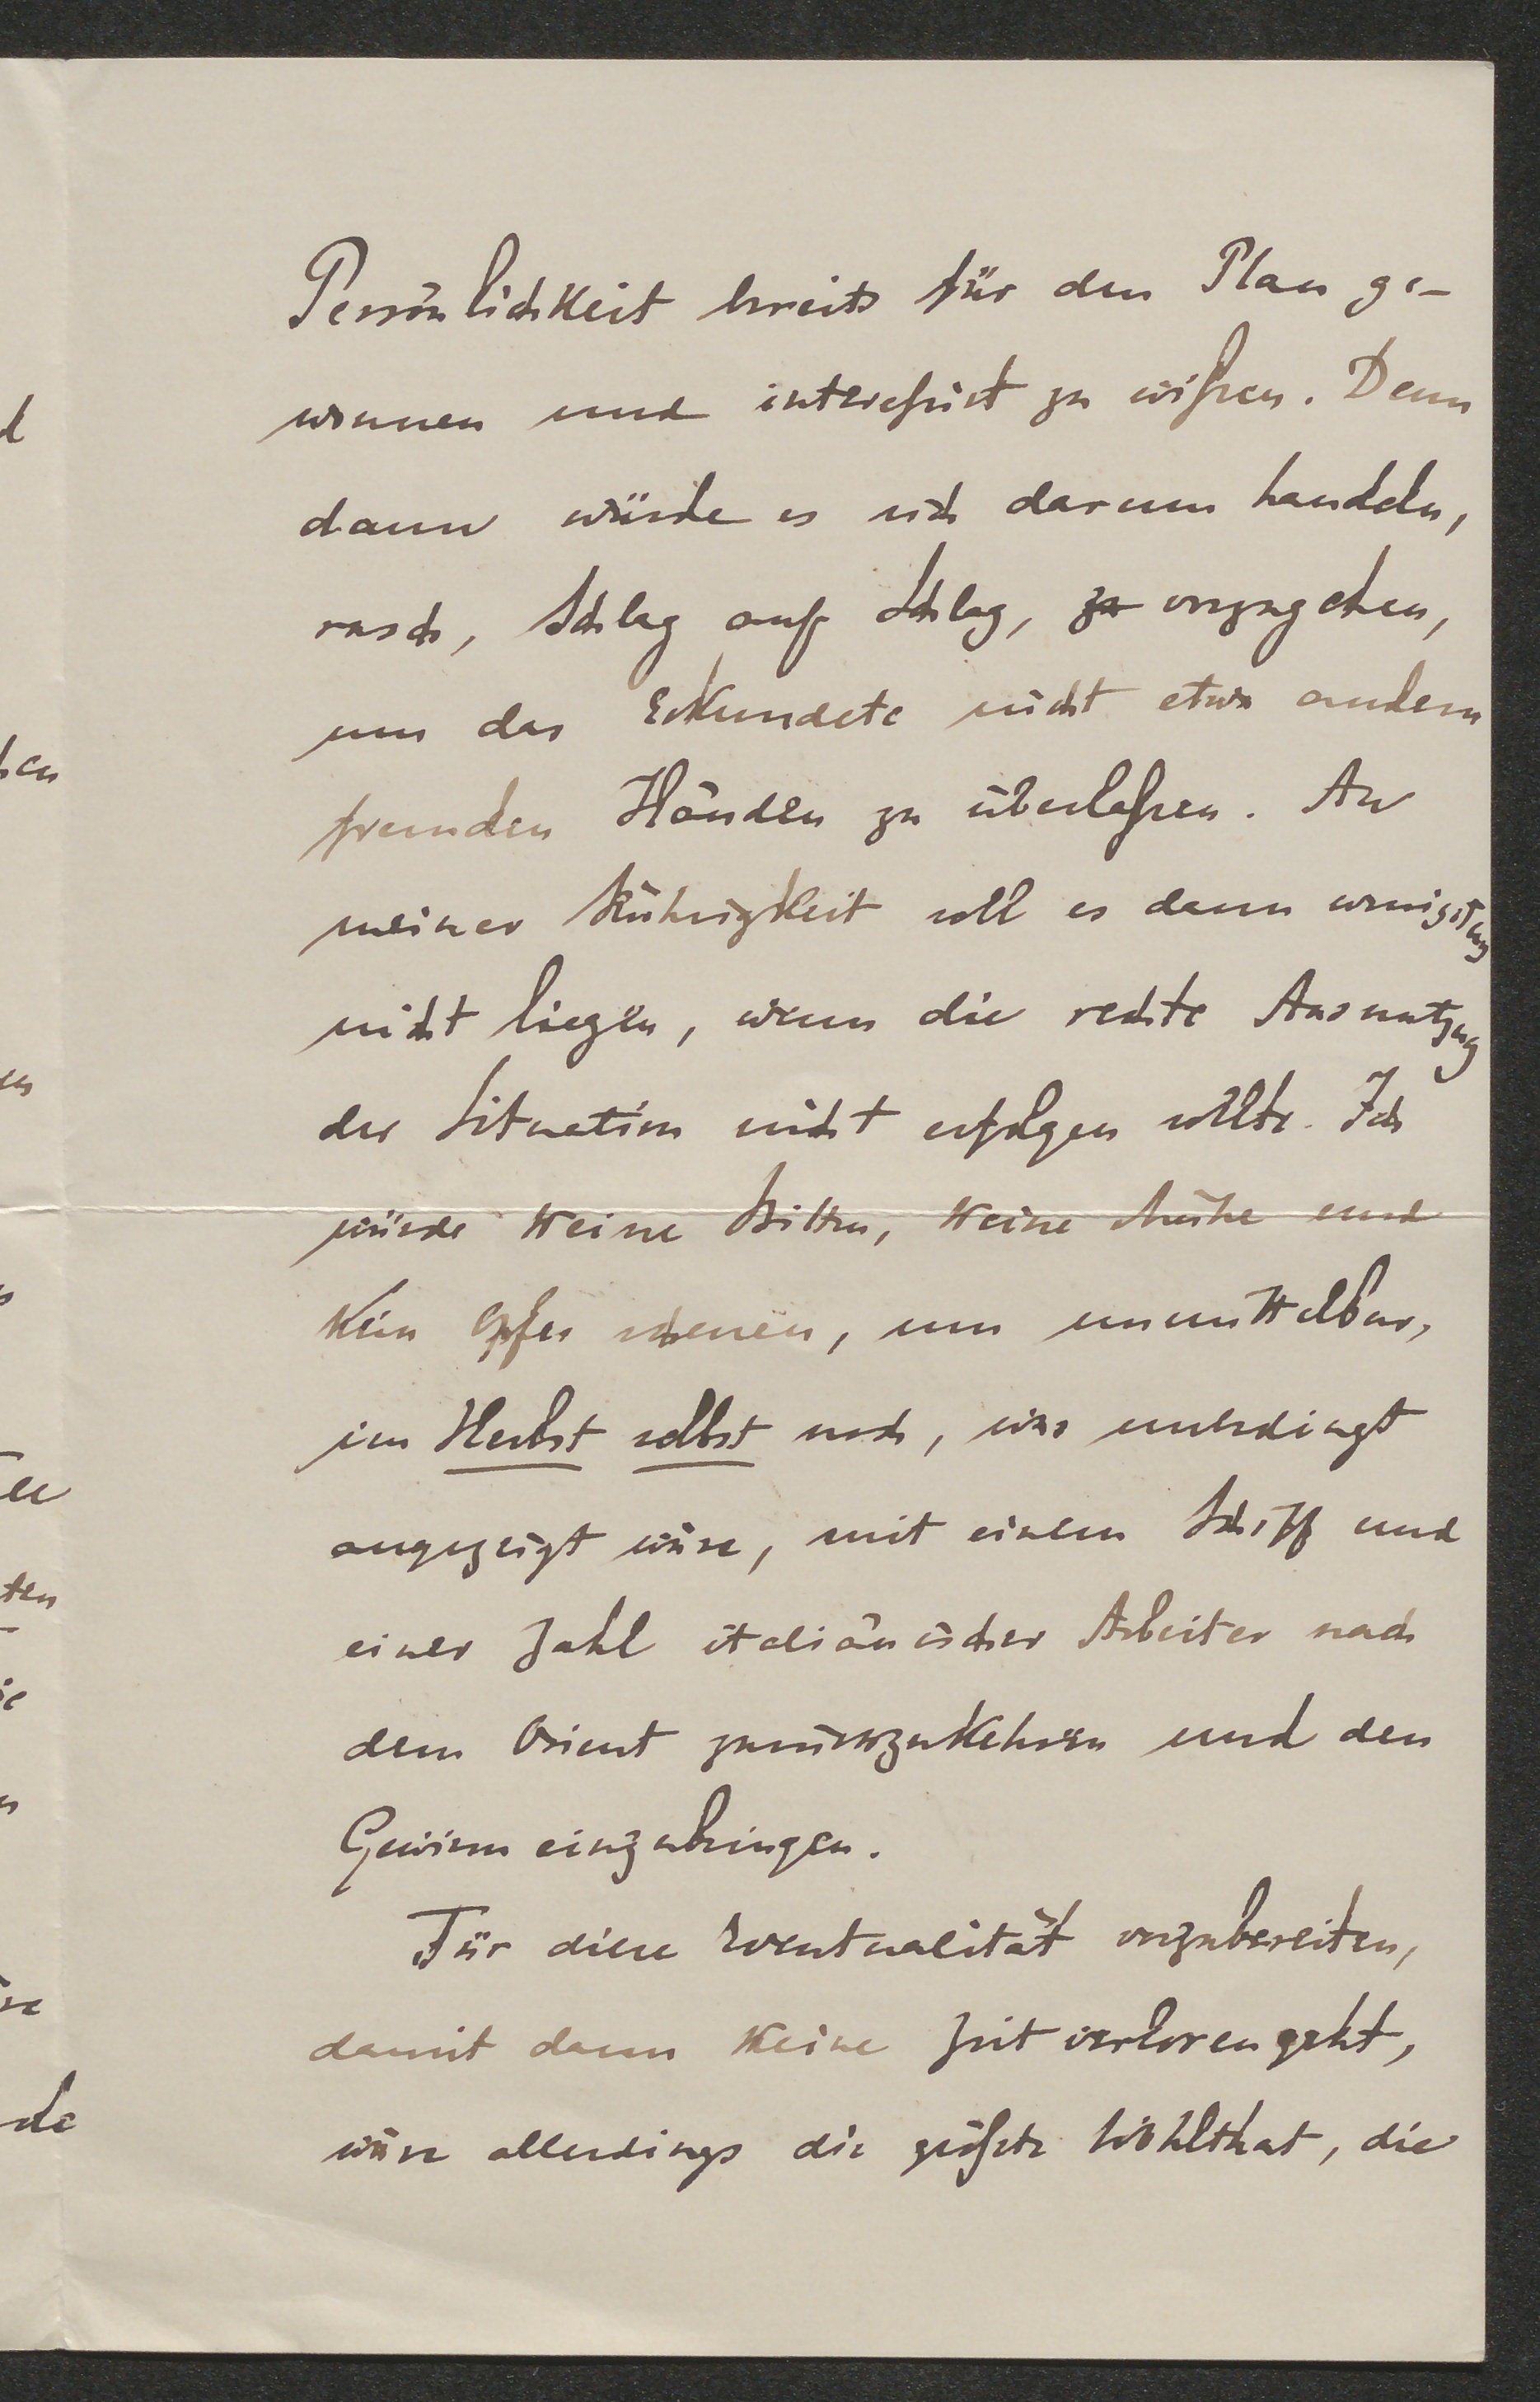 Persönlichkeit bereits für den Plan ge-
wonnen und intereßirt zu wißen. Denn
dann würde es sich darum handeln,
rasch, Schlag auf Schlag, zu vorzugehen,
um das Erkundete nicht etwa andern
fremden Händen zu überlaßen. An
meiner Rührigkeit soll es dann wenigstens
nicht liegen, wenn die rechte Ausnutzung
der Situation nicht erfolgen sollte. Ich
würde keine Bitten, keine Mühe und
kein Opfer scheuen, um unmittelbar,
im Herbst selbst noch, was unbedingt
angezeigt wäre, mit einem Schiff und
einer Zahl italiänischer Arbeiter nach
dem Orient zurückzukehren und den
Gewinn einzubringen.
Für diese Eventualität vorzubereiten,
damit dann keine Zeit verloren geht,
wäre allerdings die größte Wohlthat, die